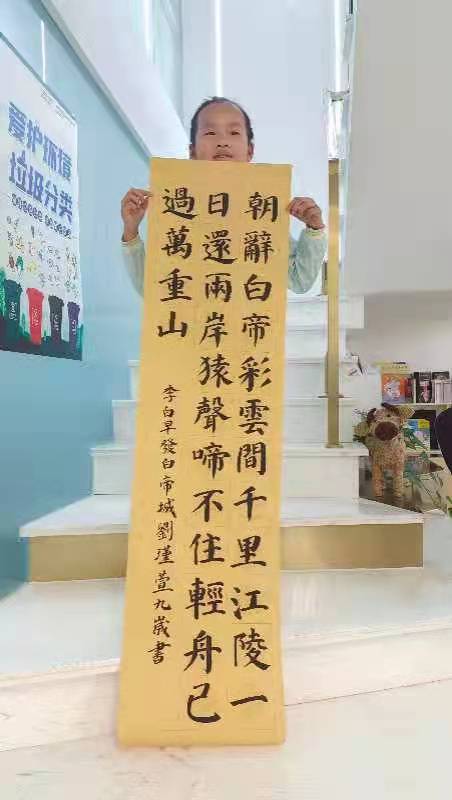 朝辭白帝彩雲間千里江陵一
日還兩岸猿聲啼不住輕舟已
過萬重山
李白早發白帝城劉瑾萱九歲書
爱护环境
垃圾分类